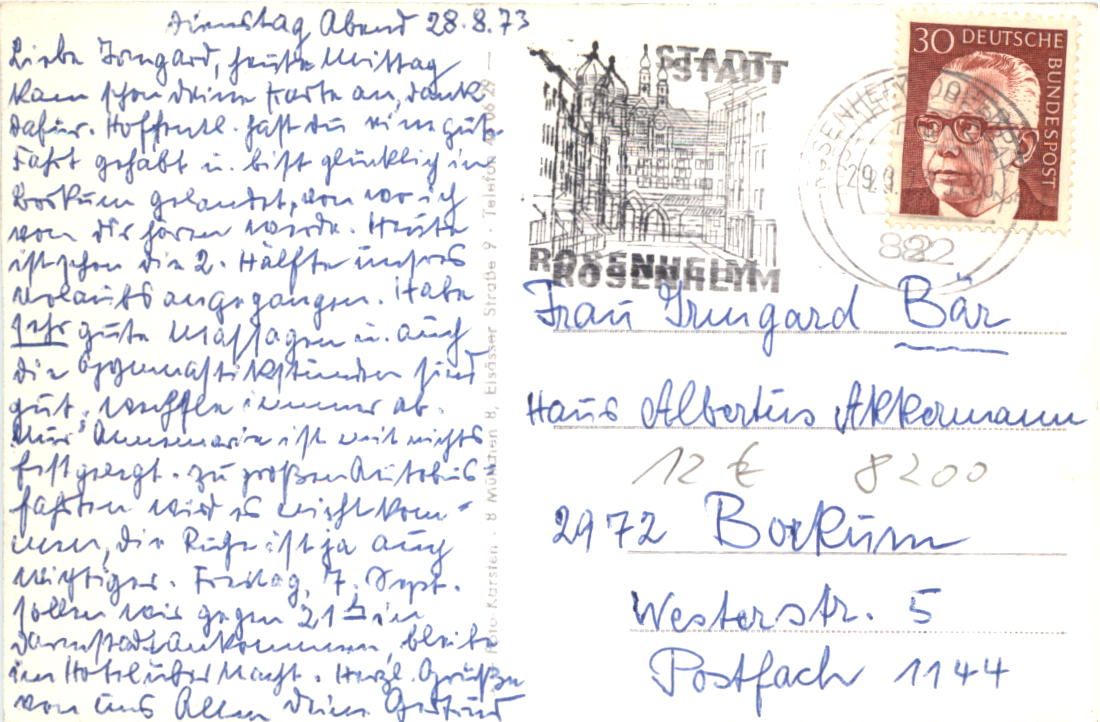 Dienstag Abend 28.8.73
Liebe Irmgard, heute Mittag
kam schon deine Karte an, dank
dafür. Hoffentl. hast du eine gute
Fahrt gehabt u. bist glücklich in
Borkum gelandet, von wo ich
von dir hören werde. Heute
ist schon die 2. Hälfte unsres
Urlaubs angegangen. Habe
sehr gute Massagen u. auch
die Gymnastikstunden sind
gut, wechseln immer ab.
Nur Annemarie ist weit nichts
festgelegt. Zu großen Autobus
fahrten wird es nicht kom-
men, die Ruhe ist ja auch
wichtiger. Freitag, 7. Sept.
sollen wir gegen 21 h in
Darmstadt ankommen, bleibe
im Hotel über Nacht. Herzl. Grüße
von uns Allen deine Gertrud
Foto Karsten · 8 München 8, Elsässer Straße 9 · Telefon
STADT
ROSENHEIM
ROSENHEIM
30 DEUTSCHE
BUNDESPOST
822
Frau Irmgard Bär
Haus Albertus Akkermann
12 € 8200
2972 Borkum
Westerstr. 5
Postfach 1144